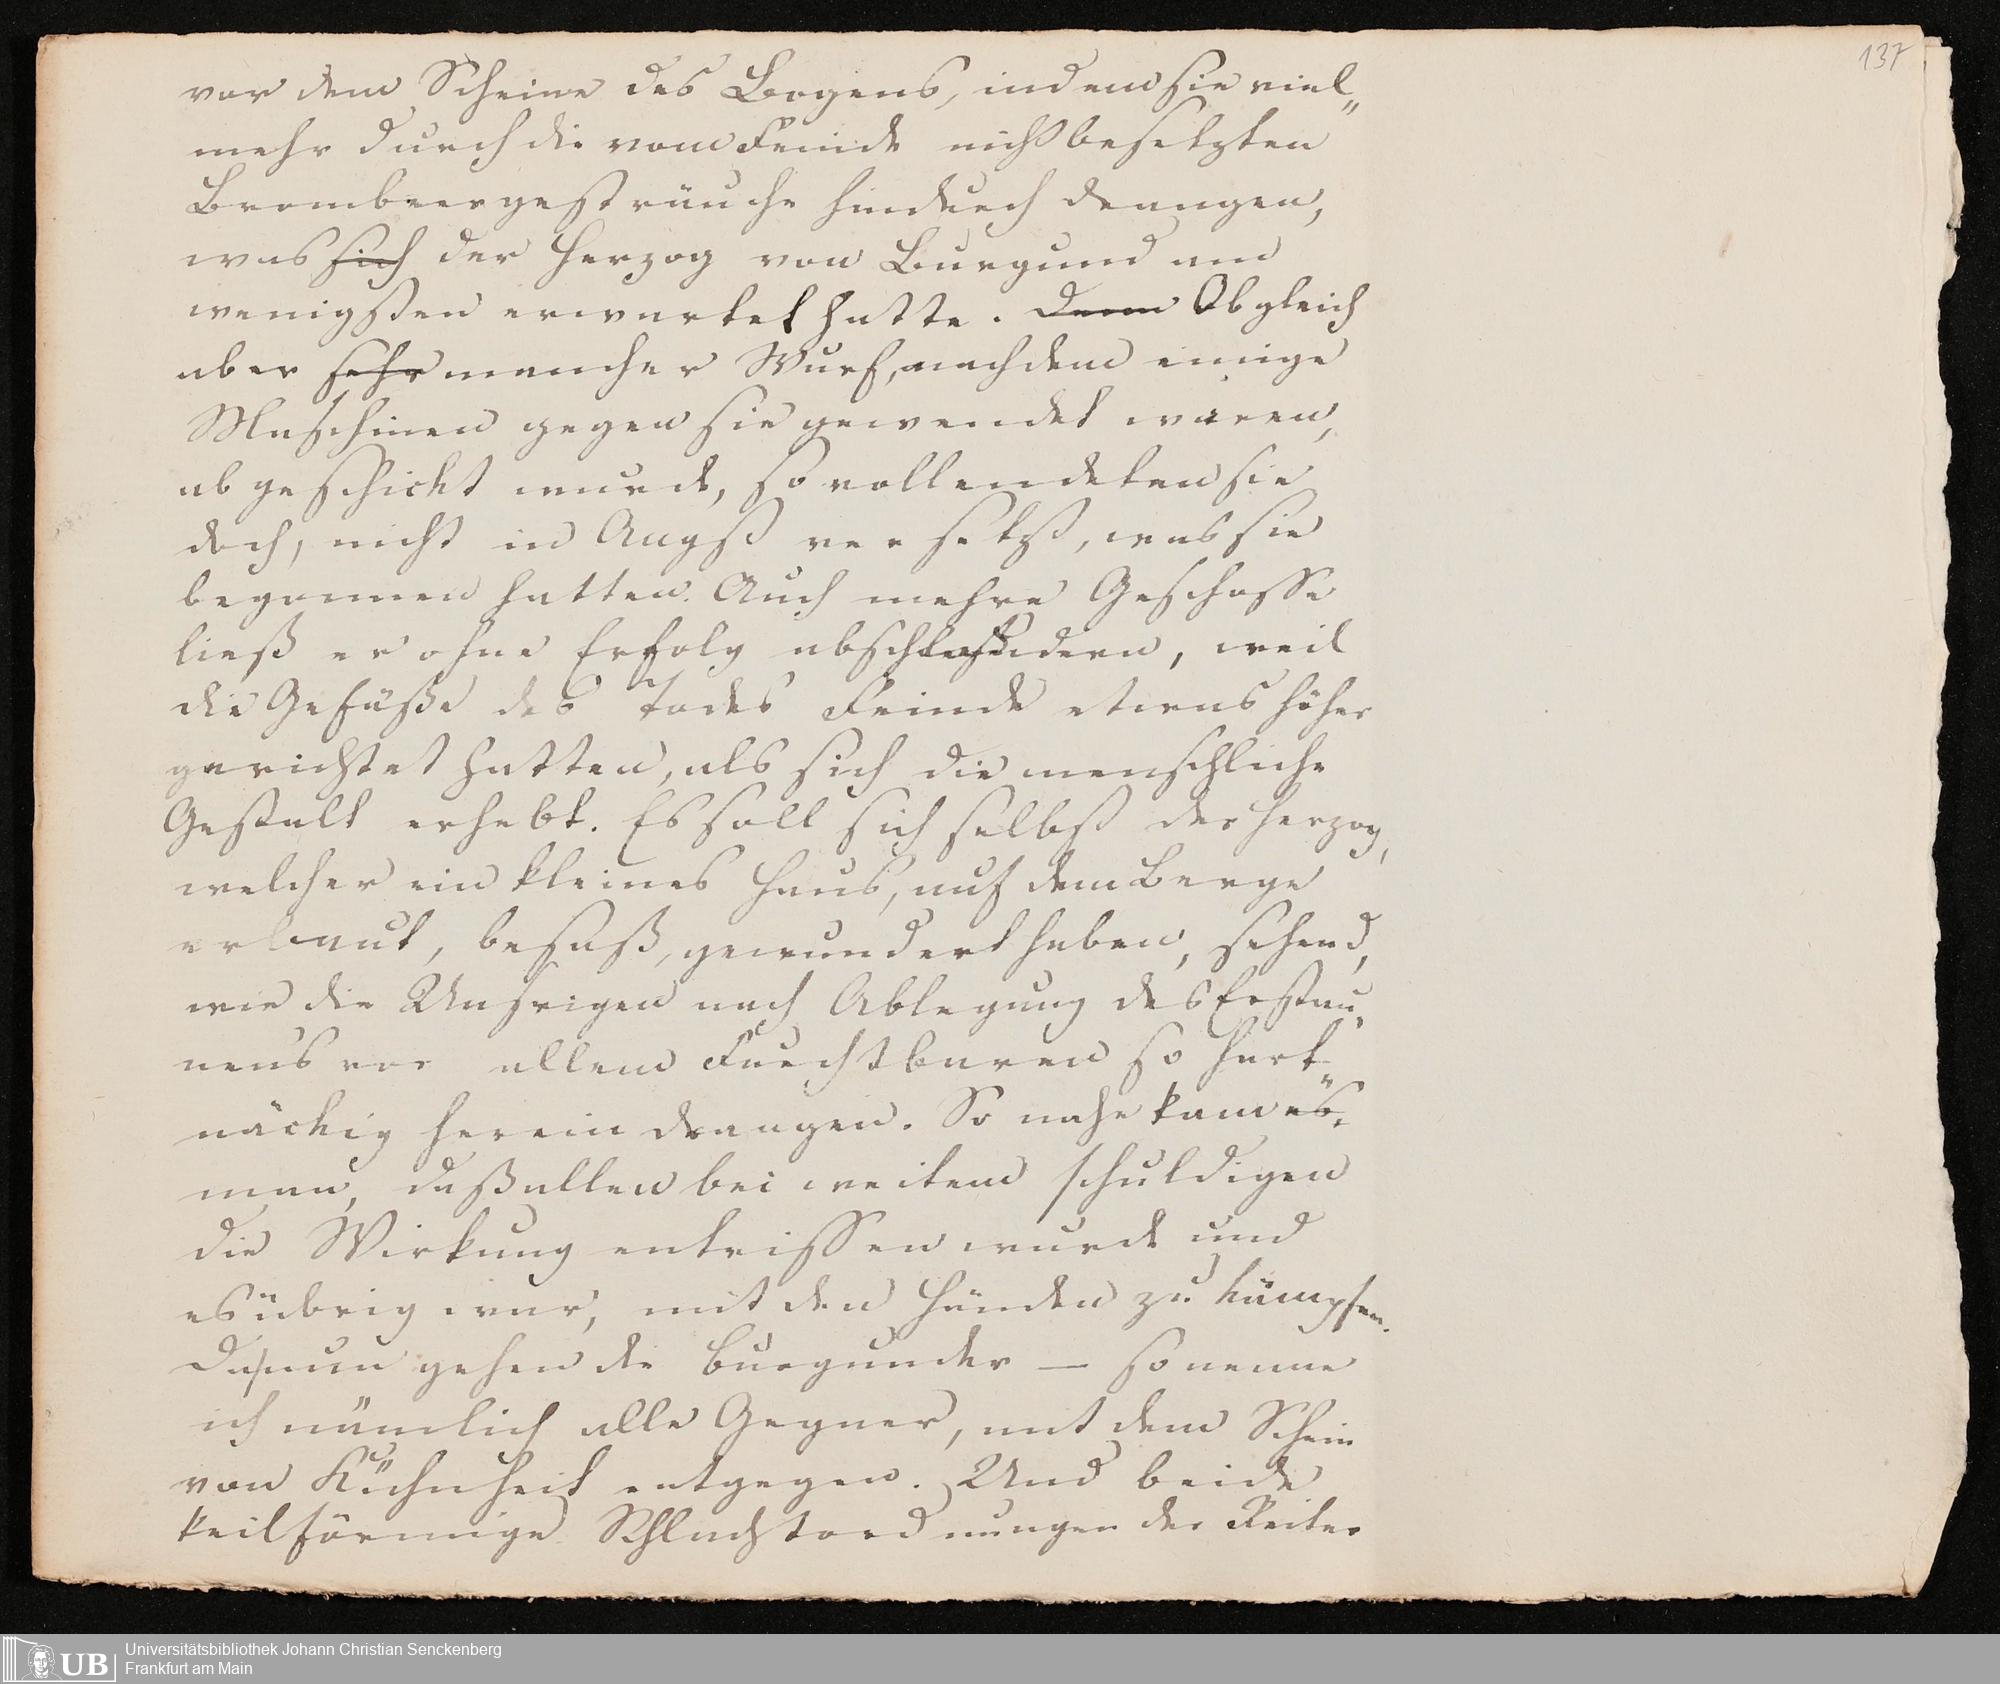 137
vor dem Scheine des Bogens, indem sie viel„
mehr durch die vom Feinde nicht besetzten
Brombeergesträuche hindurch drangen,
was sich der Herzog von Burgund am
wenigsten erwartet hatte. Denn Obgleich
aber sehr mancher Wurf, nachdem einige
Maschinen gegen sie gewendet waren,
abgeschickt wurde, so vollendeten sie
doch, nicht in Angst versetzt, was sie
begonnen hatten. Auch mehre Geschosse
ließ er ohne Erfolg abschleudern, weil
die Gefäße des Todes Feinde etwas höher
gerichtet hatten, als sich die menschliche
Gestalt erhebt. Es soll sich selbst der Herzog,
welcher ein kleines Haus, auf dem Berge
erbaut, besaß, gewundert haben, sehend,
wie die Unsrigen nach Ablegung des Erstau„
nens vor allem Furchtbaren so hart„
näckig herein drangen. So nahe kam es
man, daß allen bei weitem schuldigen
die Wirkung entrissen wurde und
es übrig war, mit den Händen zu kämpfen.
Da nun gehen die Burgunder — so nenne
ich nämlich alle Gegner, mit dem Schein
von Kühnheit entgegen. Und beide
keilförmige Schlachtordnungen der Reiter
UB
Universitätsbibliothek Johann Christian Senckenberg
Frankfurt am Main